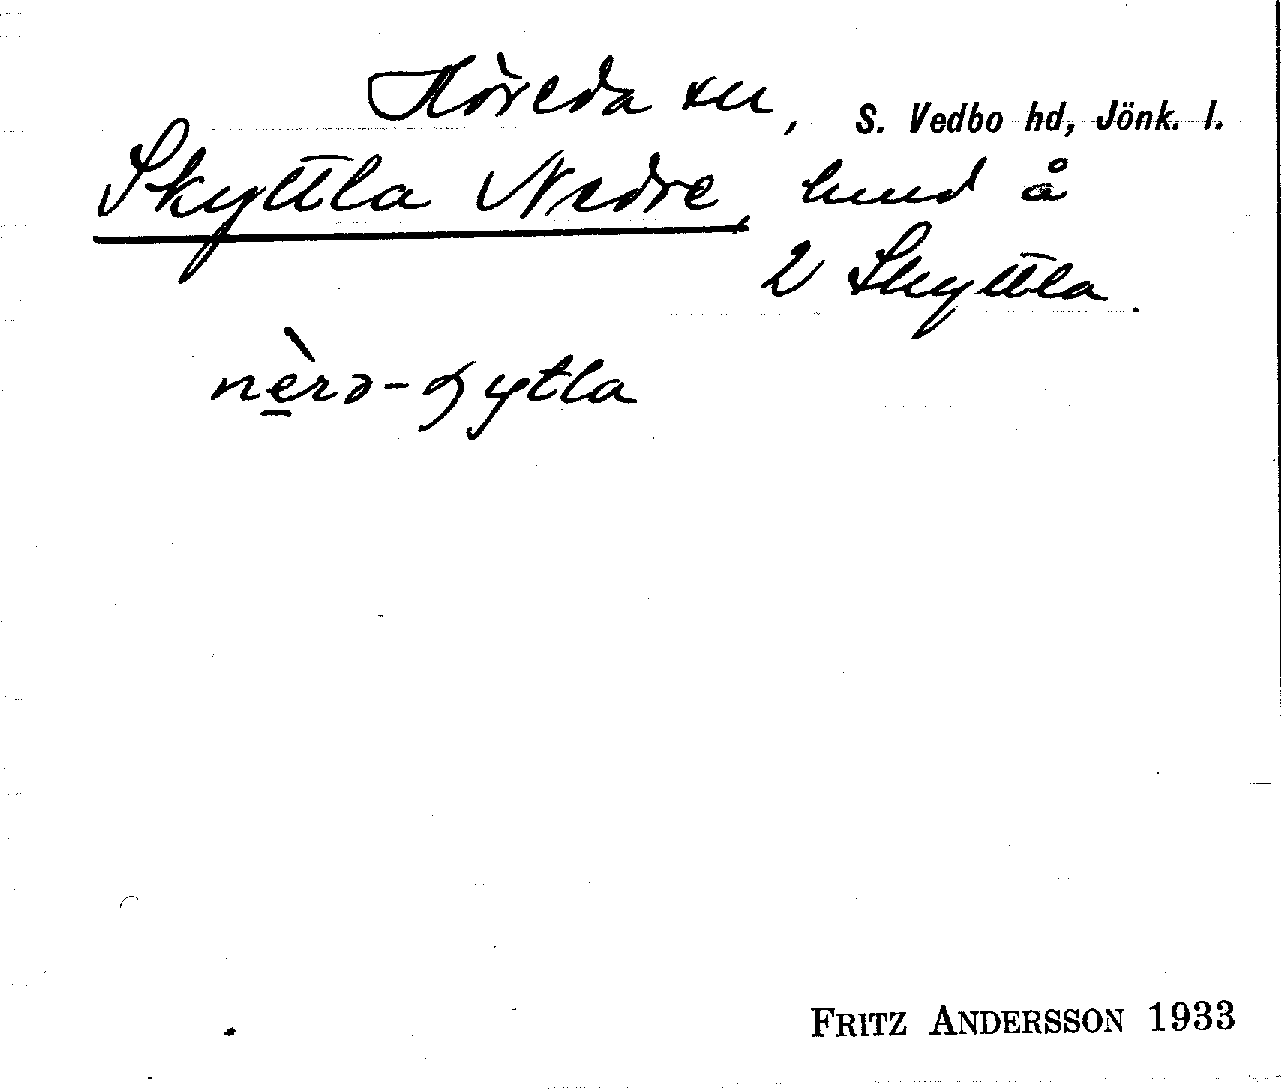 Höreda sn, S. Vedbo hd, Jönk. l.
Skyttla Nedre, hmd å
2 Skyttla.
nèrə-ʂytla
FRITZ ANDERSSON 1933